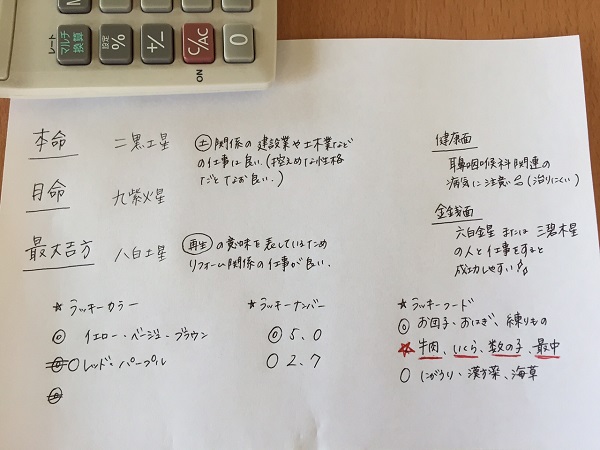 レート
マルチ
換算
設定
%
+/−
C/AC
0
ON
本命 二黒土星 土関係の建設業や土木業など
の仕事に良い(控えめな性格
だとなお良い。)
月命 九紫火星
最大吉方 八白土星 再生の意味を表しているため
リフォーム関係の仕事が良い。
健康面
耳鼻咽喉科関連の
病気に注意(治りにくい)
金銭面
六白金星 または 三碧木星
の人と仕事をすると
成功しやすい
☆ラッキーカラー
◎ イエロー・ベージュ・ブラウン
○ レッド・パープル
☆ラッキーナンバー
◎ 5、0
○ 2、7
☆ラッキーフード
◎ お団子、おはぎ、練りもの
☆ 牛肉、いくら、数の子、最中
○ にがうり、漢方薬、海草